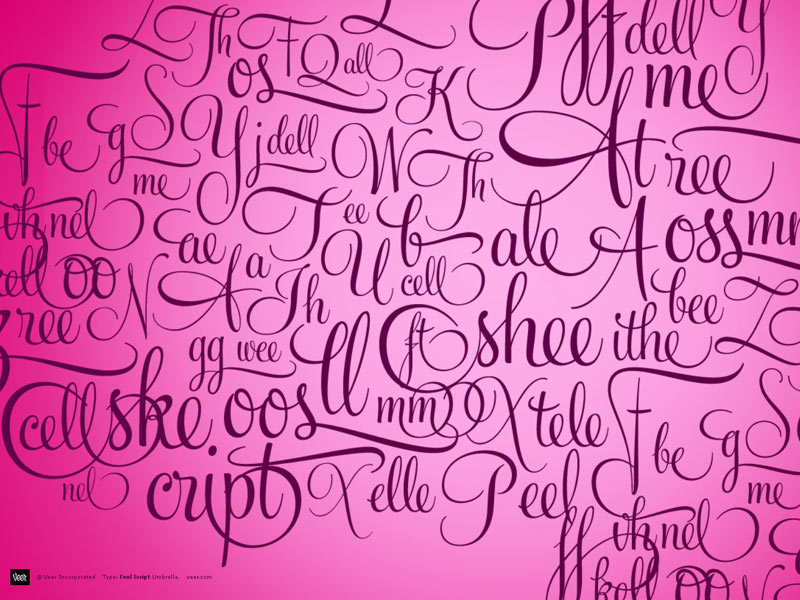 Th F Q all L Pff dell Y
os K me
F be g S Y j dell W At ree
me Th
uh nel ae T ee b ale A oss mm
kell oo N A a Th U cell bee
ree ft shee ithe L
gg wee ll
cell ske oos mm X tele F be g S
nel cript X elle Peel me
uh nel
ff kell oo N
Veer © Veer Incorporated Type: Feel Script Umbrella. veer.com